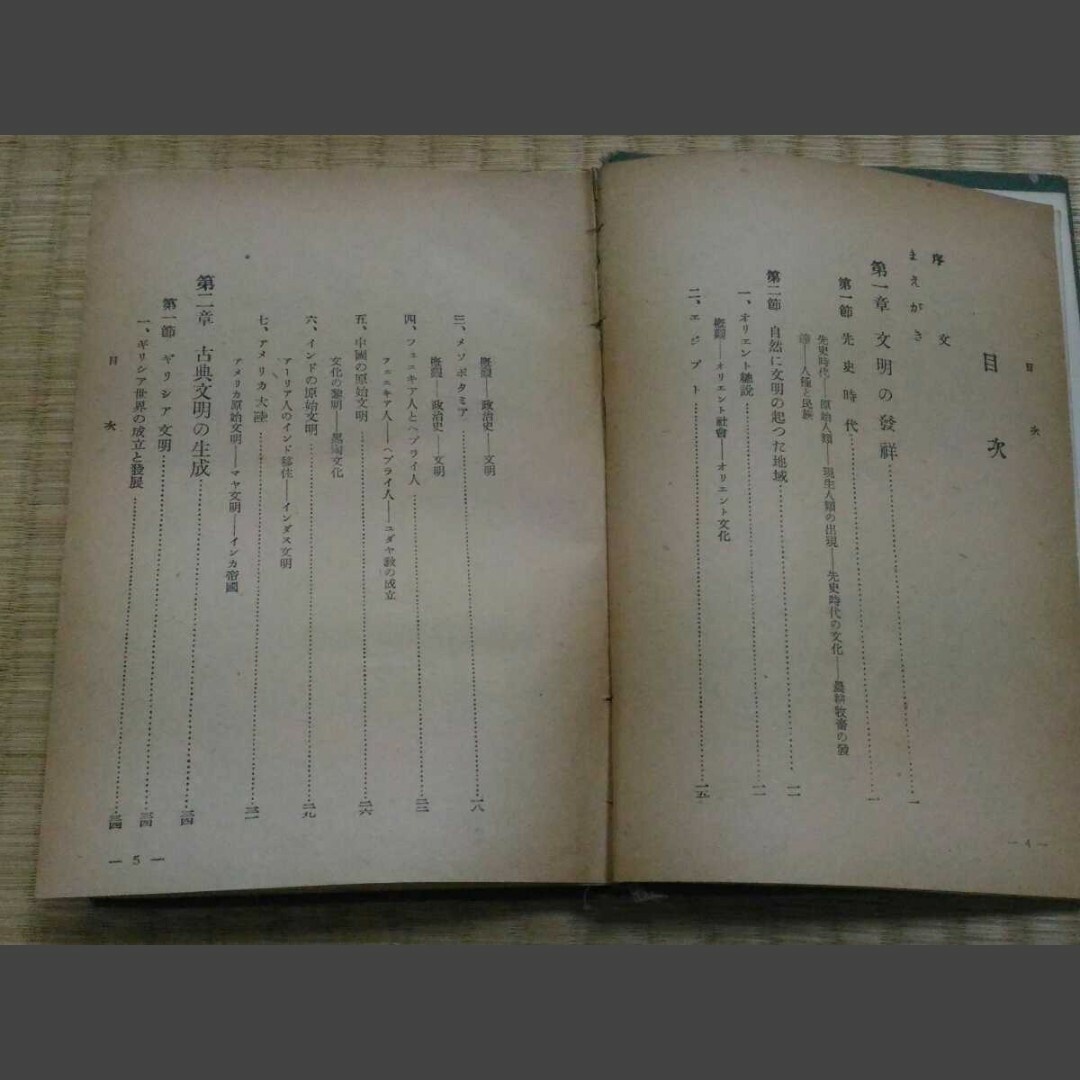 目次
目次
序文
まえがき
第一章 文明の發祥……一
第一節 先史時代……一
先史時代――原始人類――現生人類の出現――先史時代の文化――農耕牧畜の發
達――人種と民族
第二節 自然に文明の起つた地域……一一
一、オリエント總說……一一
概觀――オリエント社會――オリエント文化
二、エジプト……一五
— 4 —
概觀――政治史――文明
三、メソポタミア……一八
概觀――政治史――文明
四、フェニキア人とヘブライ人……二三
フェニキア人――ヘブライ人――ユダヤ敎の成立
五、中國の原始文明……二六
文化の黎明――黑陶文化
六、インドの原始文明……二九
アーリア人のインド移住――インダス文明
七、アメリカ大陸……三一
アメリカ原始文明――マヤ文明――インカ帝國
第二章 古典文明の生成……三四
第一節 ギリシア文明……三四
一、ギリシア世界の成立と發展……三四
目次
— 5 —